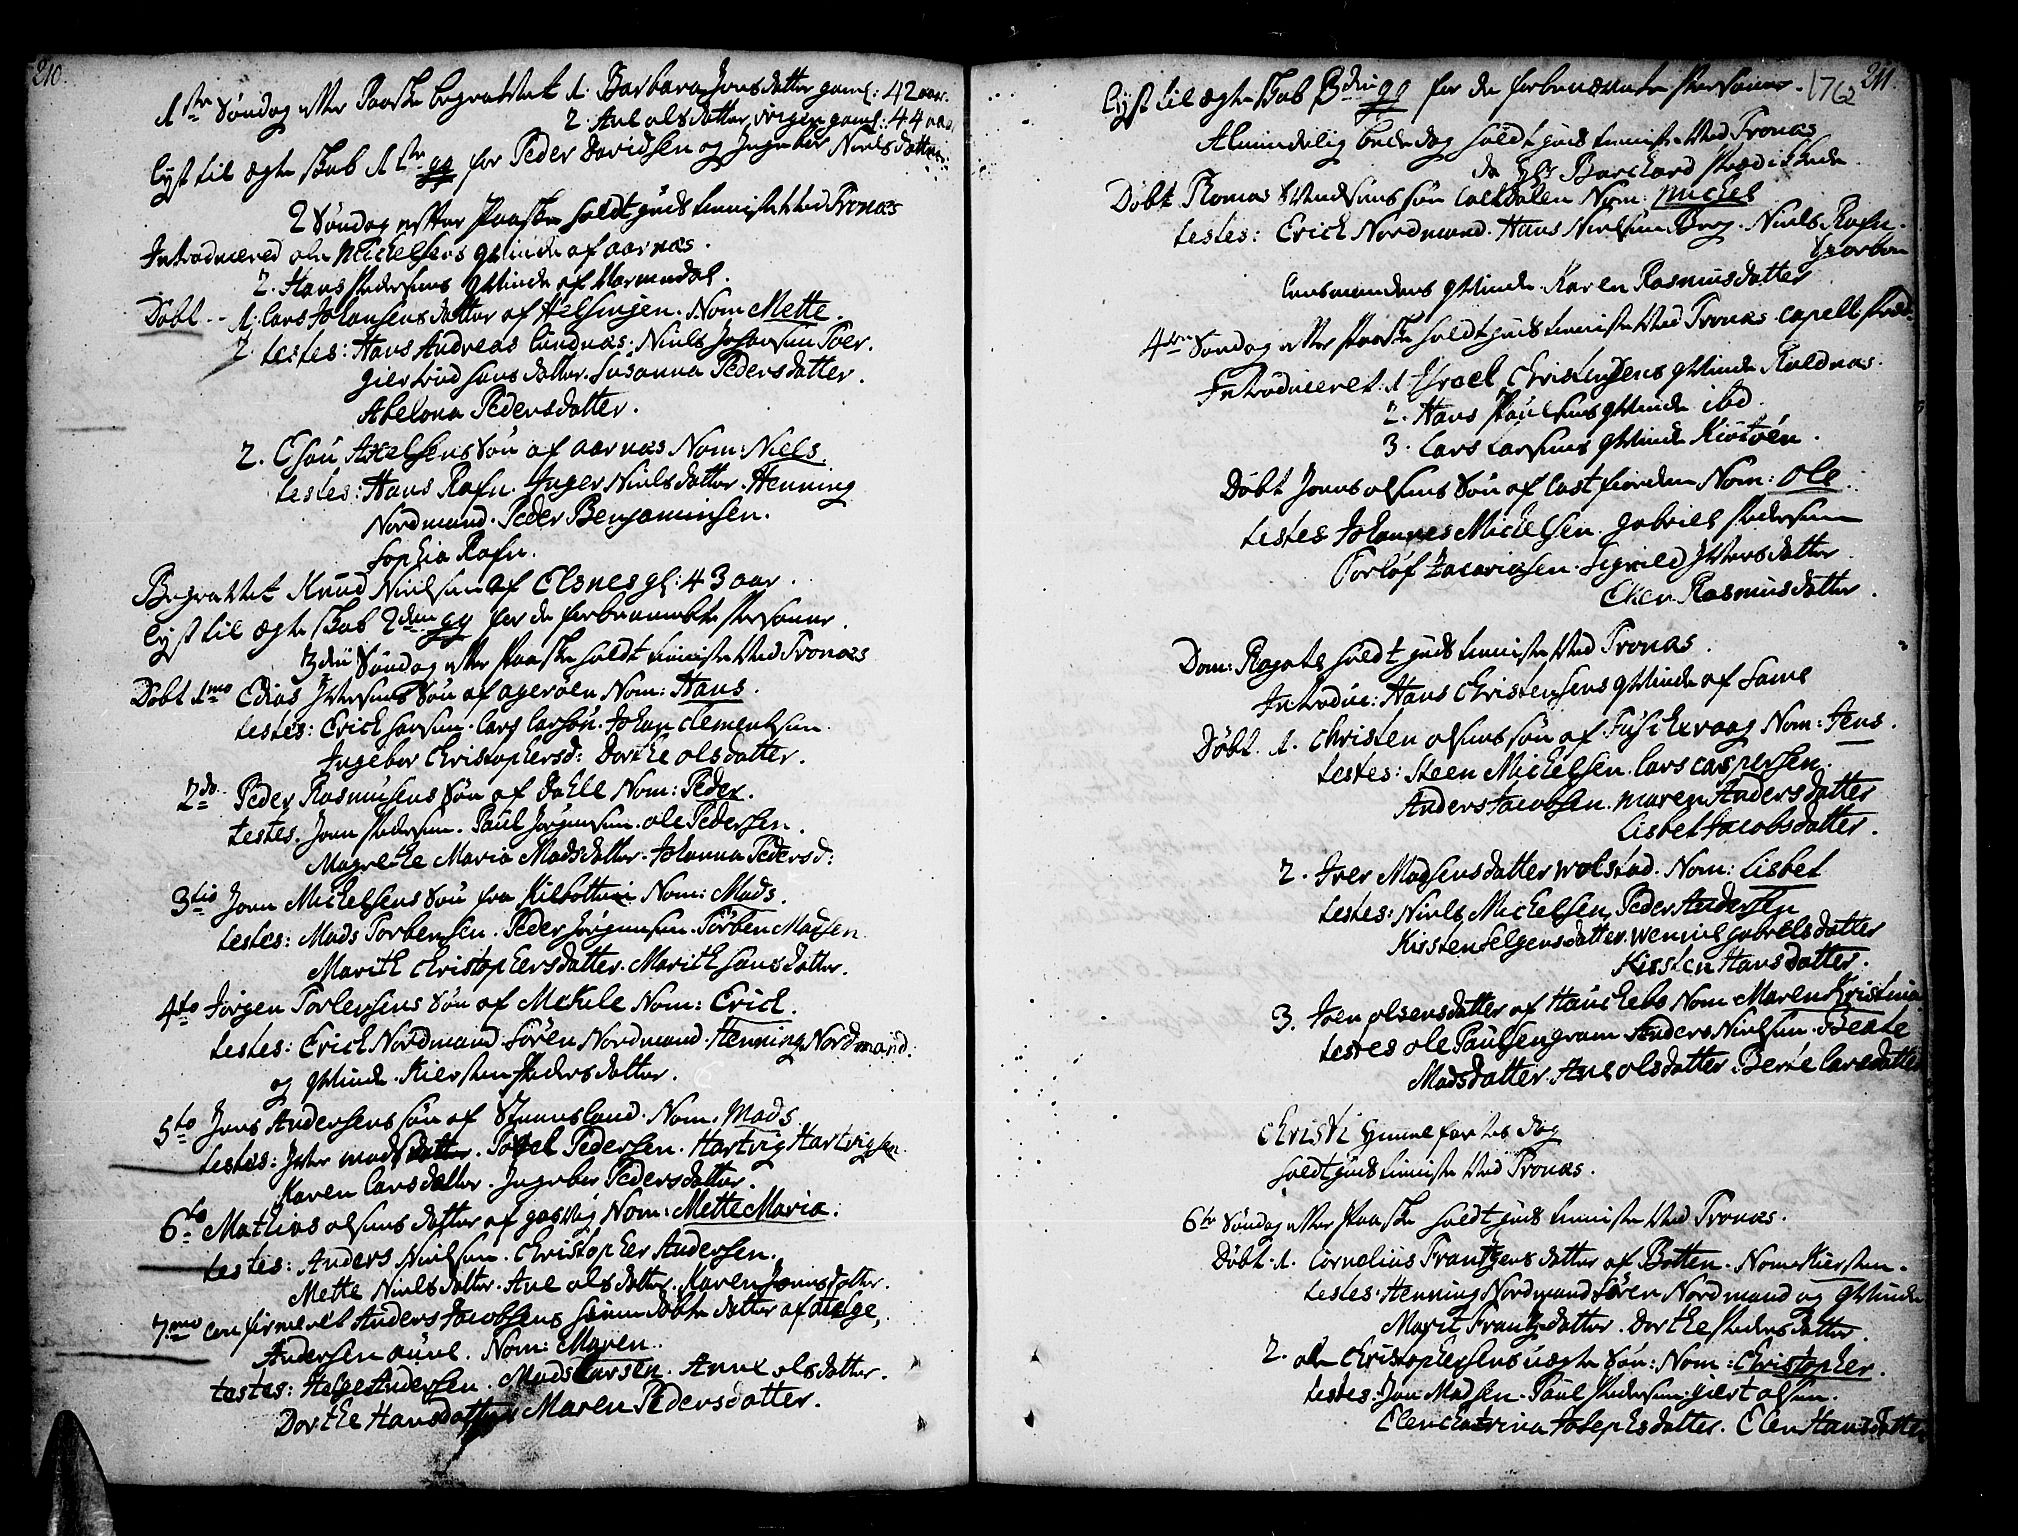 210.
1ste Søndag efter Paaske begravet 1. Barbara Jonsdatter gaml: 42 aar.
2. Ane olsdatter, gaml: 44 aar.
lyst til ægteskab 1ste gg for Peder Davidsen og Ingebor Nielsdatter.
2 Søndag efter Paaske holdt gudstienniste Ved Tronæs
Introduceret ole Michelsens qvinde af aarnæs.
2. Hans Pedersens qvinde af
Døbt 1. Lars Johansens datter af Helsingen. Nom: Mette.
testes: Hans Andreas Niels Johansen
giertrud hansdatter. Susanna Pedersdatter.
Abelona Pedersdatter.
2. Esau Axelsens Søn af aarnæs Nom: Niels.
testes: Hans Rafn. Inger Nielsdatter. Henning
Nordmand. Peder Benjaminsen.
Sophia Rafn.
Begravet Knud Nielsen af Elsnes gl: 43 aar.
lyst til ægteskab 2den gg for de forbenævnte Personer.
3die Søndag efter Paaske holdt tienniste Ved Tronæs
Døbt 1mo Elias Iversens Søn af agerøen Nom: Hans.
testes: Erich hansen. Lars Larsøn. Johan Clementsen
Ingebor Christophersd: Dorthe olsdatter.
2do Peder Rasmusens Søn af Nom: Peder.
testes. Jonn Pedersen. Paul Jørgensen. ole Pedersen.
Magrethe Maria Madsdatter. Johanna Pedersd:
3tio Jonn Michelsens Søn fra Kilbotten Nom: Mads.
testes: Mads Torbensen. Peder Jørgensen. Torben Madsen
Marith Christophersdatter. Marith hansdatter.
4to Jørgen Torlensens Søn af Mehle Nom: Erich.
testes: Erich Nordmand. Søren Nordmand. Henning Nordmand:
og qvinde. Kiersten Pedersdatter.
5to Jens Andersens søn af Stunsland. Nom: Mads.
testes: Iver Pedersen. Hartvig Hartvigsen
Karen Larsdatter. Ingebor Pedersdatter.
6to Mathias olsens datter af gaasvig Nom: Mette Maria:
testes: Anders Nielsen. Christopher Andersen.
Mette Nielsdatter. Ane olsdatter. Karen Jonsdatter.
7mo confirmeret Anders Jacobsens hiemdøbte datter af
Andersen Nom: Maren.
testes: Helge Andersen. Mads Larsen. Anne olsdatter.
Dorthe Hansdatter Maren Pedersdatter.
1762 211.
lyst til ægteskab 3die gg for de forbenævnte Personer.
Almindelig bededag holdt gudstienniste Ved Tronæs
da Hr Borchard prædikede
Døbt Thomas søn Nom: Michel
testes: Erich Nordmand. Hans Nielsen Berg. Niels Rafn.
Lensmandens qvinde. Karen Rasmusdatter
4de Søndag efter Paaske holdt gudstienniste Ved Tronæs
Introduceret. 1. Israel Christensens qvinde
2. Hans Paulsens qvinde ibd.
3. Lars Larsens qvinde Kiøtøen.
Døbt Jonas olsens Søn af Nom: ole.
testes Johannes Michelsen. gabriel Pedersen
Torlof Zacariasen. Sigrild Iversdatter.
Elen Rasmusdatter.
Dom: Rogate holdt gudstienniste Ved Tronæs.
Introduc: Hans Christensens qvinde af Sama
Døbt. 1. Christen olsens søn af Nom: Jens.
testes: Steen Michelsen. Lars Caspersen.
Anders Jacobsen. Maren Andersdatter
Lisbet Jacobsdatter.
2. Iver Madsens datter wolstad. Nom: Lisbet
testes: Niels Michelsen. Peder Andersen
Kirsten Helgensdatter. gabrelsdatter
Kirsten Hansdatter.
3. Joen olsens datter af Nom Maren Kristina
testes ole Paulsen gram Anders Nielsen. Beate
Madsdatter. Ane olsdatter. Berte Larsdatter
Christi Himmelfartes dag
holdt gudstienniste Ved Tronæs.
6te Søndag efter Paaske holdt gudstienniste Ved Tronæs.
Døbt. 1. Cornelius Frantzens datter af Botten. Nom: Kiersten.
testes. Henning Nordmand Søren Nordmand og qvinde
Marit Frantzdatter. Dorthe Pedersdatter.
2. ole Christophersens uægte Søn: Nom: Christopher.
testes. Jon Madsen. Paul Pedersen. giert olsen.
Elen Catrina Josephsdatter. Elen Hansdatter